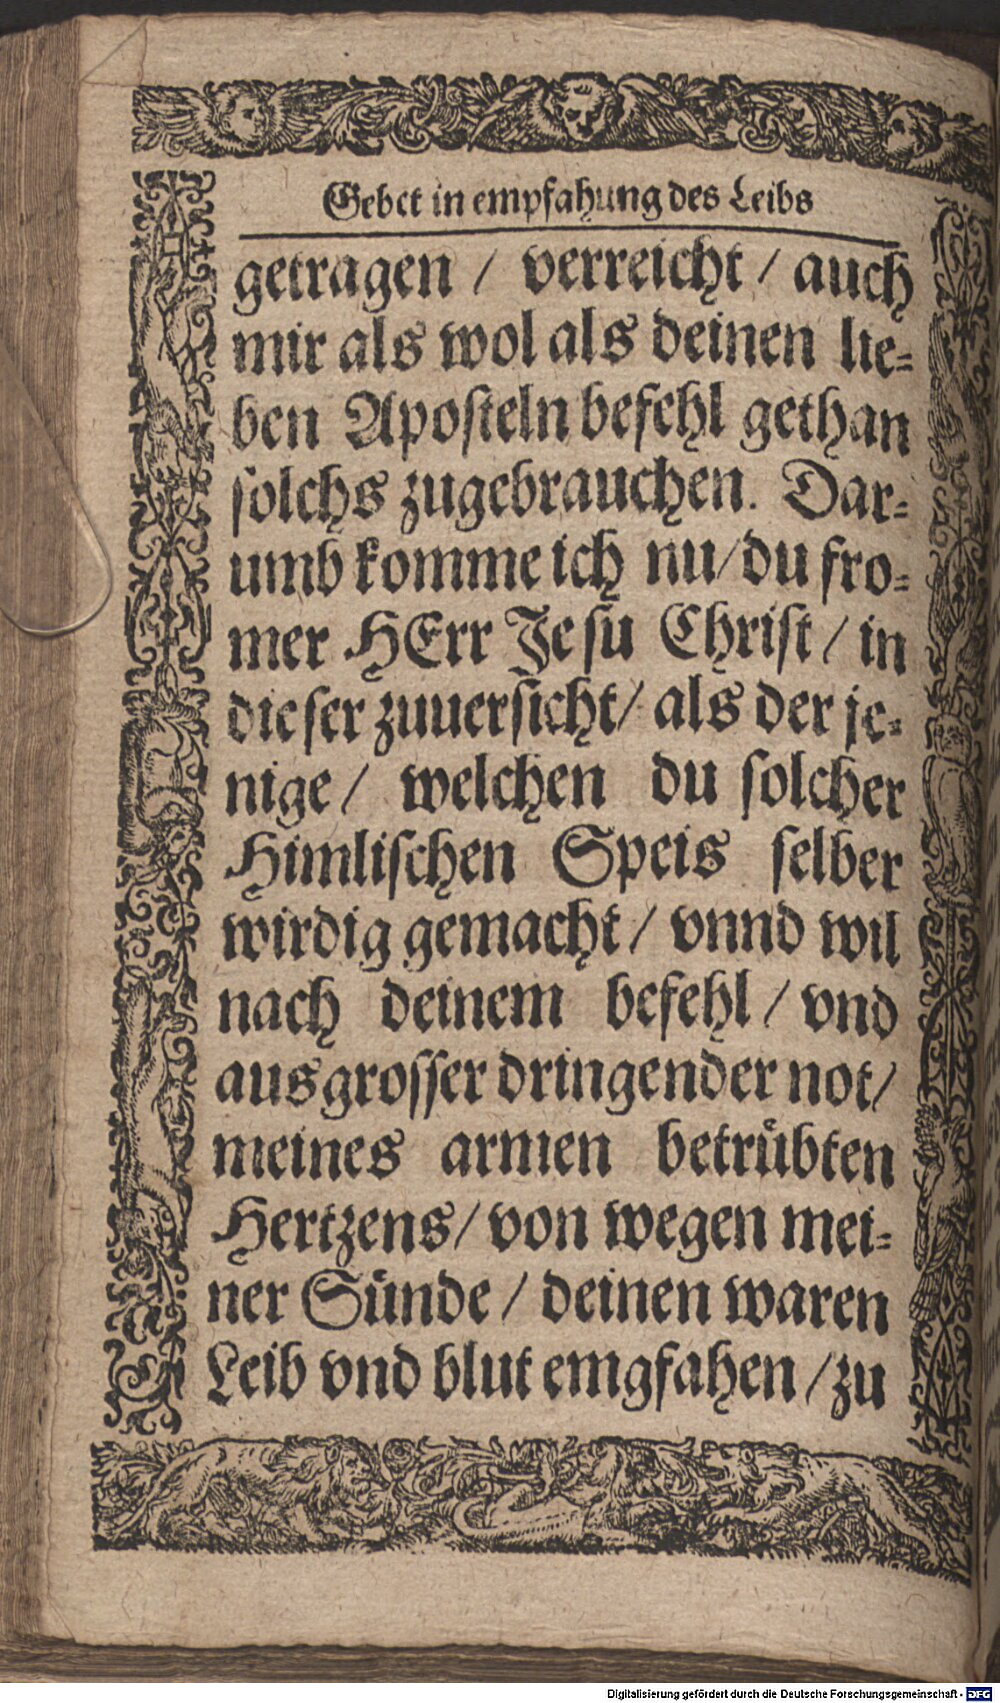 Gebet in empfahung des Leibs
getragen / verreicht / auch
mir als wol als deinen lie⸗
ben Apoſteln befehl gethan
ſolchs zugebrauchen. Dar⸗
umb komme ich nu / du fro⸗
mer HErr Jeſu Chriſt / in
dieſer zuuerſicht / als der je⸗
nige / welchen du ſolcher
Himliſchen Speis ſelber
wirdig gemacht / vnnd wil
nach deinem befehl / vnd
aus groſſer dringender not /
meines armen betruͤbten
Hertzens / von wegen mei⸗
ner Suͤnde / deinen waren
Leib vnd blut emgfahen / zu
Digitalisierung gefördert durch die Deutsche Forschungsgemeinschaft - DFG